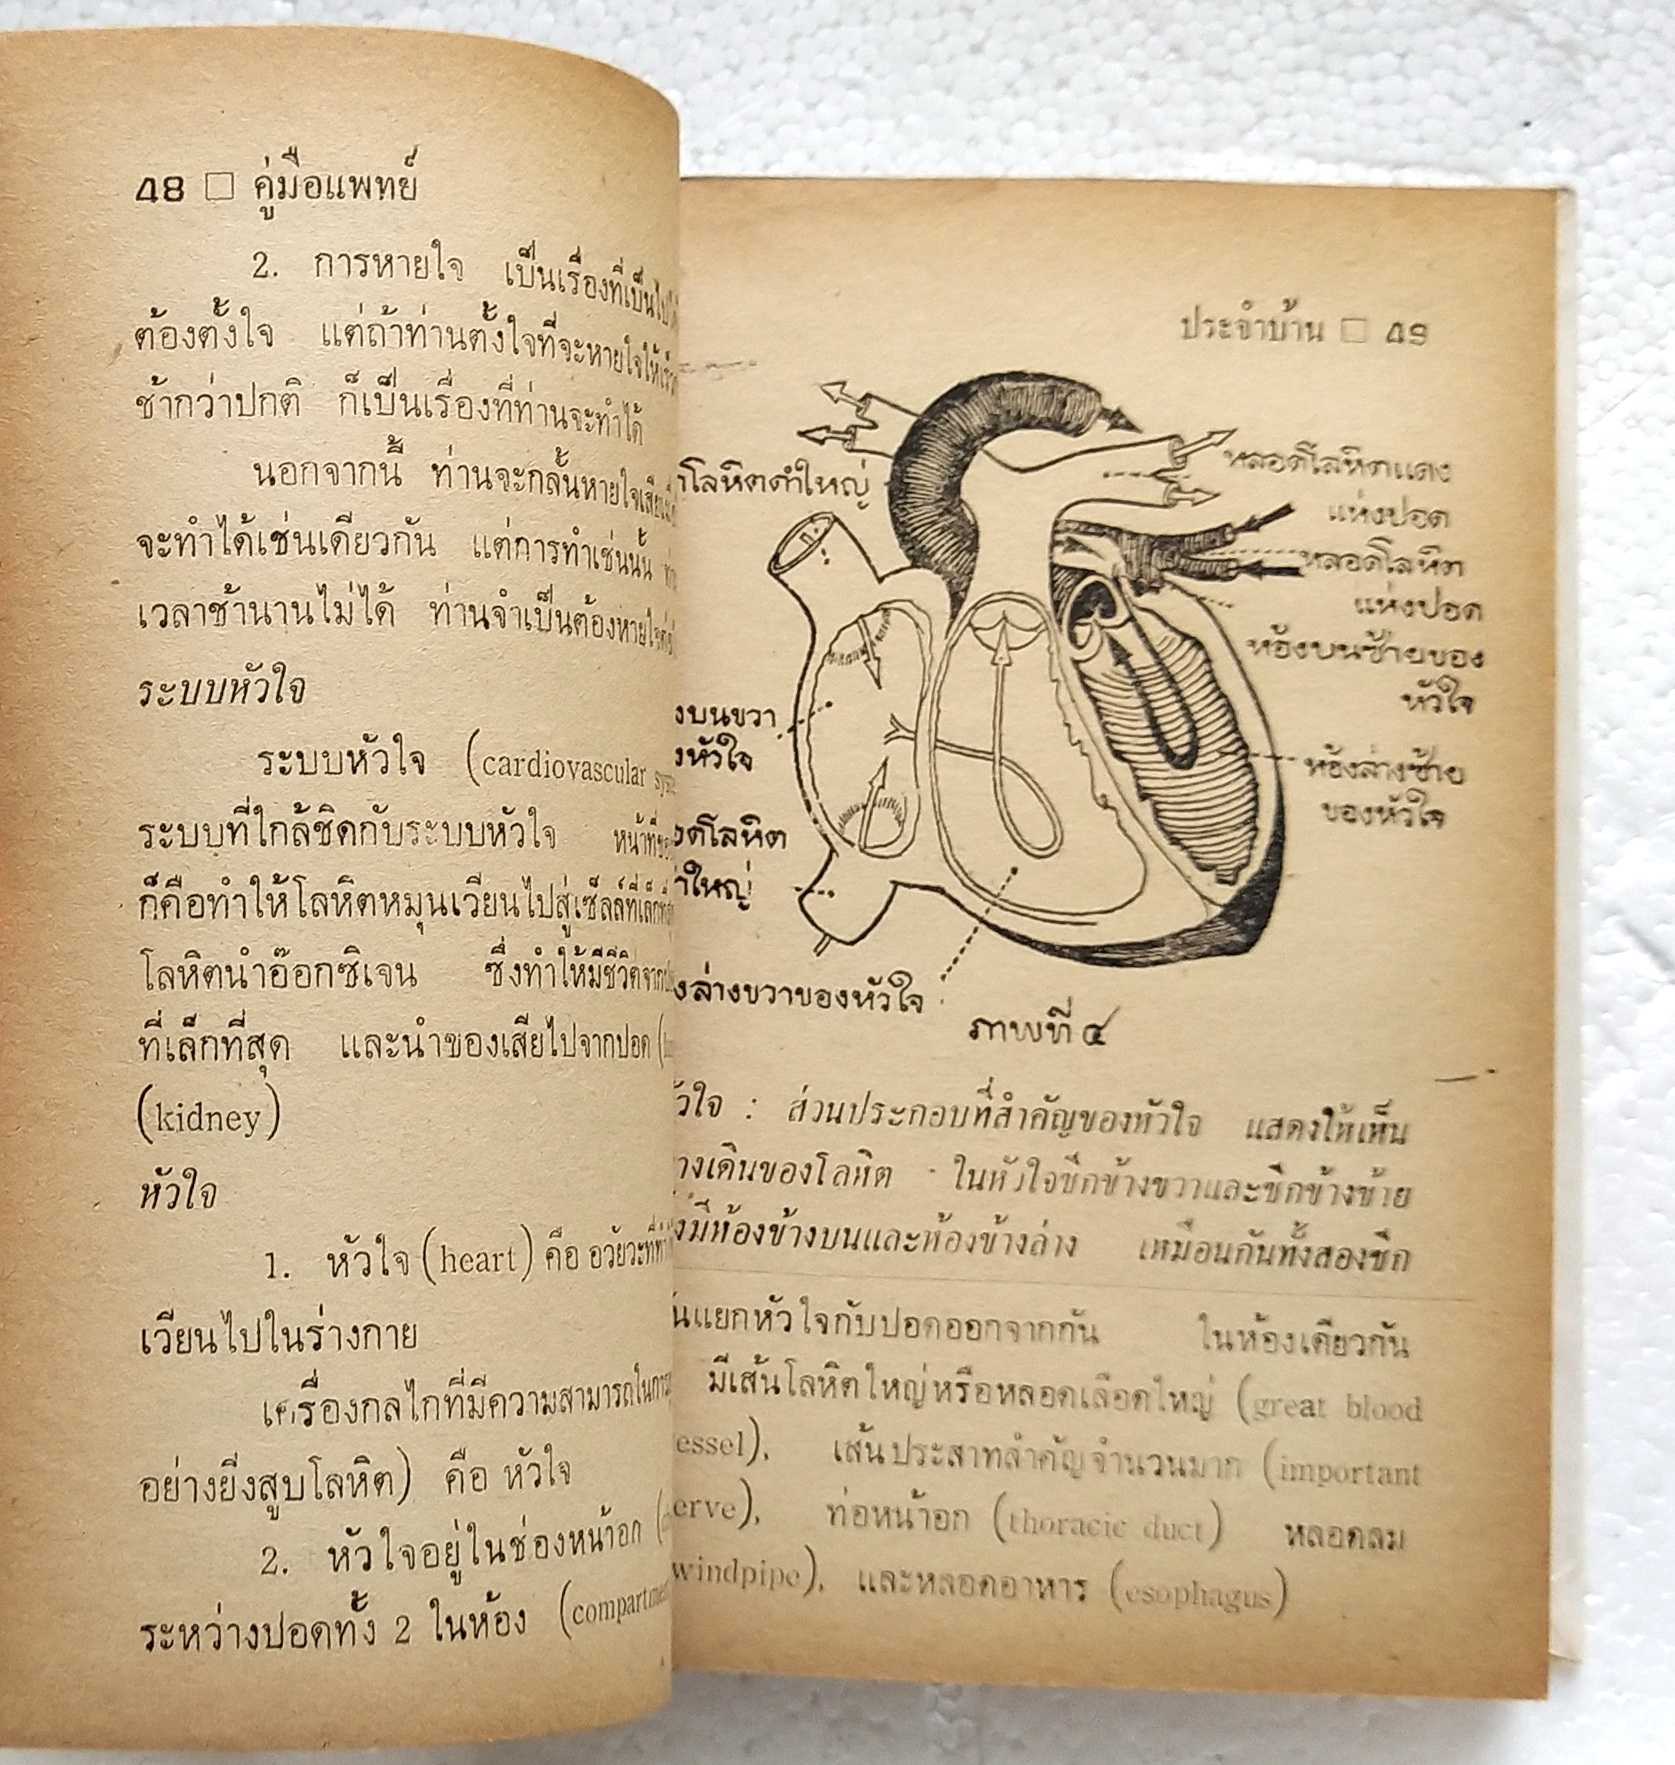 48 □ คู่มือแพทย์
2. การหายใจ เป็นเรื่องที่เป็นไป
ต้องตั้งใจ แต่ถ้าท่านตั้งใจที่จะหายใจให้เร็ว
ช้ากว่าปกติ ก็เป็นเรื่องที่ท่านจะทำได้
นอกจากนี้ ท่านจะกลั้นหายใจเสีย
จะทำได้เช่นเดียวกัน แต่การทำเช่นนั้น
เวลาช้านานไม่ได้ ท่านจำเป็นต้องหายใจ
ระบบหัวใจ
ระบบหัวใจ (cardiovascular
ระบบที่ใกล้ชิดกับระบบหัวใจ หน้าที่
ก็คือทำให้โลหิตหมุนเวียนไปสู่เซ็ลล์ที่เล็กที่
โลหิตนำอ๊อกซิเจน ซึ่งทำให้มีชีวิตจาก
ที่เล็กที่สุด และนำของเสียไปจากปอด
(kidney)
หัวใจ
1. หัวใจ (heart) คือ อวัยวะที่
เวียนไปในร่างกาย
เครื่องกลไกที่มีความสามารถในการ
อย่างยิ่งสูบโลหิต) คือ หัวใจ
2. หัวใจอยู่ในช่องหน้าอก
ระหว่างปอดทั้ง 2 ในห้อง (compartment
ประจำบ้าน □ 49
โลหิตดำใหญ่
หลอดโลหิตแดง
แห่งปอด
หลอดโลหิต
แห่งปอด
ห้องบนซ้ายของ
หัวใจ
งบนขวา
งหัวใจ
ห้องล่างซ้าย
ของหัวใจ
อดโลหิต
ำใหญ่
งล่างขวาของหัวใจ
ภาพที่ ๔
หัวใจ : ส่วนประกอบที่สำคัญของหัวใจ แสดงให้เห็น
ทางเดินของโลหิต ในหัวใจซีกข้างขวาและซีกข้างซ้าย
ซึ่งมีห้องข้างบนและห้องข้างล่าง เหมือนกันทั้งสองซีก
นแยกหัวใจกับปอดออกจากกัน ในห้องเดียวกัน
มีเส้นโลหิตใหญ่หรือหลอดเลือดใหญ่ (great blood
essel), เส้นประสาทสำคัญจำนวนมาก (important
erve), ท่อหน้าอก (thoracic duct) หลอดลม
windpipe), และหลอดอาหาร (esophagus)